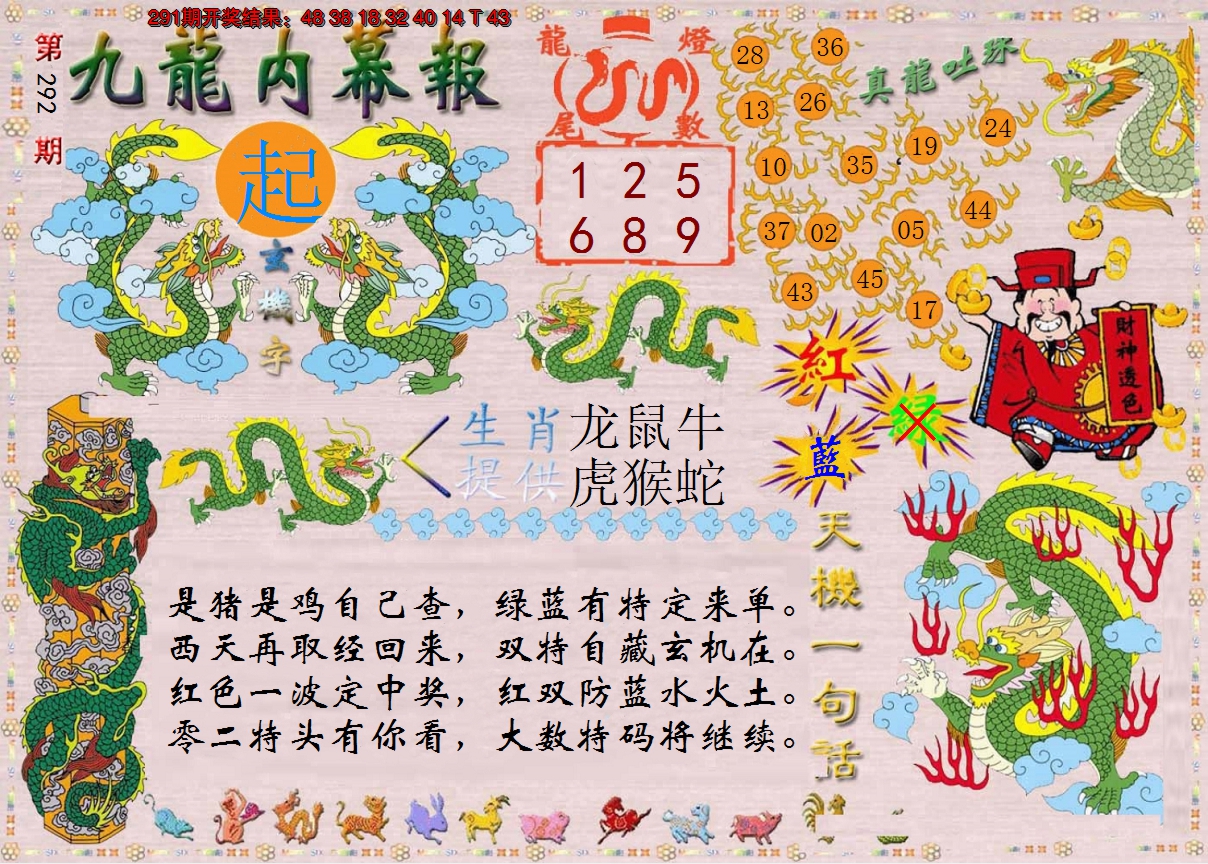 291期开奖结果：48 38 18 32 40 14 T 43
第292期
九龍内幕報
起
玄機字
龍燈尾數
1 2 5
6 8 9
真龍吐珠
28 36
13 26
10 35 19 24
37 02 05 44
43 45 17
財神透色
紅
绿
藍
生肖 龙鼠牛
提供 虎猴蛇
是猪是鸡自己查，绿蓝有特定来单。
西天再取经回来，双特自藏玄机在。
红色一波定中奖，红双防蓝水火土。
零二特头有你看，大数特码将继续。
天機一句話